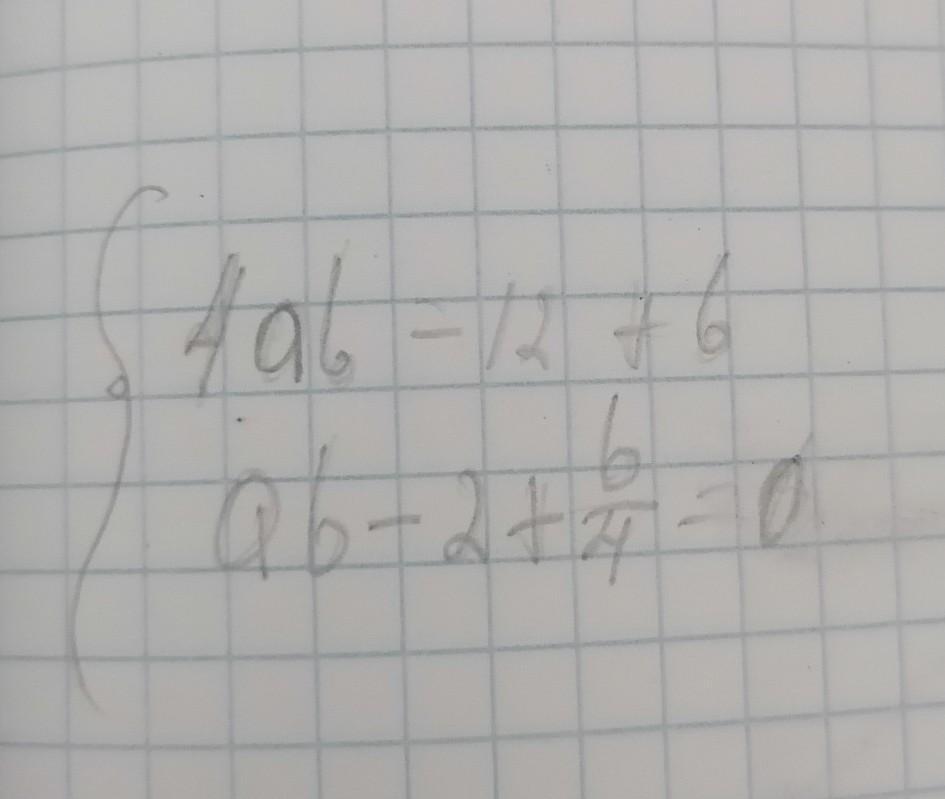 4ab = 12 + b
ab - 2 + b/4 = 0